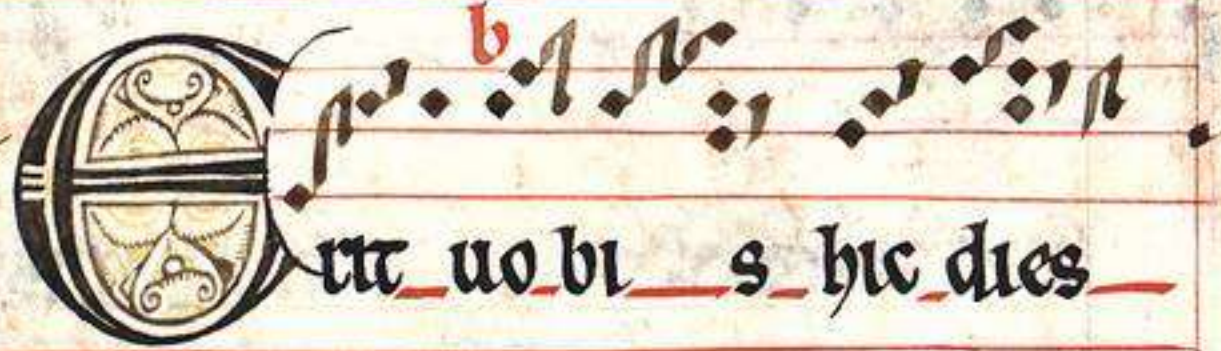 b
Erit uo bi s hic dies